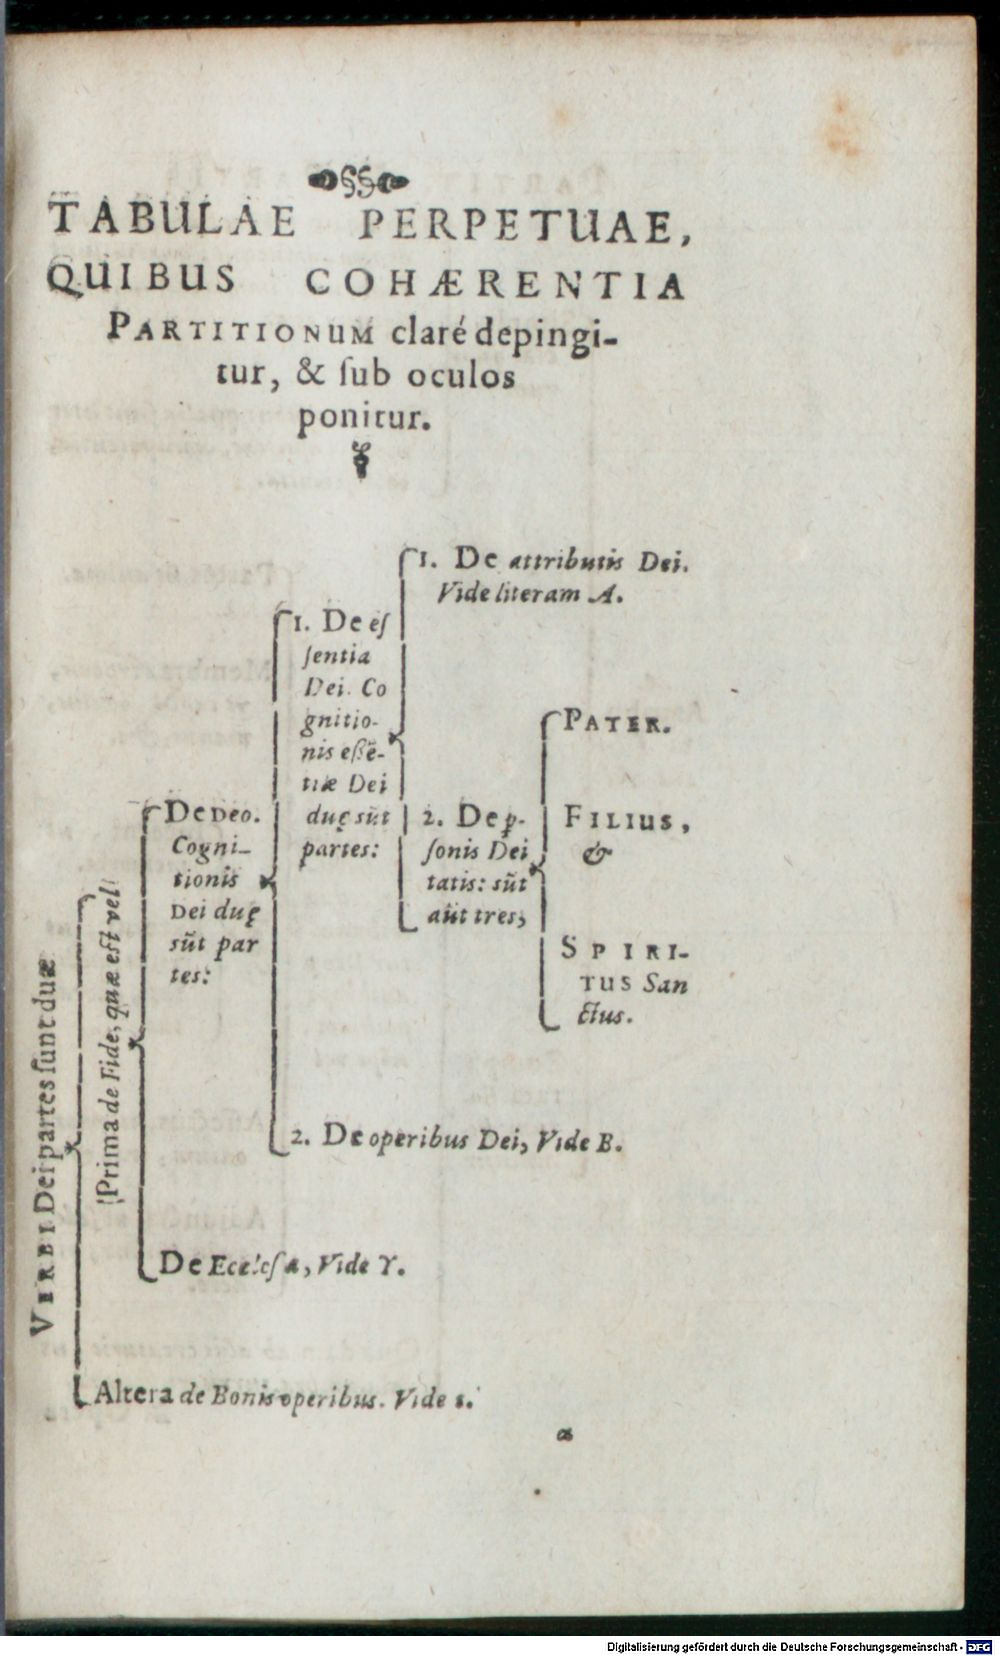 TABULAE PERPETUAE,
QUIBUS COHÆRENTIA
PARTITIONUM claré depingi-
tur, & ſub oculos
ponitur.
VERBI Dei partes ſunt duæ
Prima de Fide, quæ eſt vel
De DEO.
Cogni-
tionis
DEI duę
sūt par
tes:
1. De eſ
ſentia
Dei. Co
gnitio-
nis eßē-
tiæ Dei
duę sūt
partes:
1. De attributis Dei.
Vide literam A.
2. De ꝑ-
ſonis Dei
tatis: sūt
aūt tres,
PATER.
FILIUS,
&
SPIRI-
TUS San
ctus.
2. De operibus Dei, Vide B.
De Eccleſia, Vide Y.
Altera de Bonis operibus. Vide 1.
a
Digitalisierung gefördert durch die Deutsche Forschungsgemeinschaft - DFG